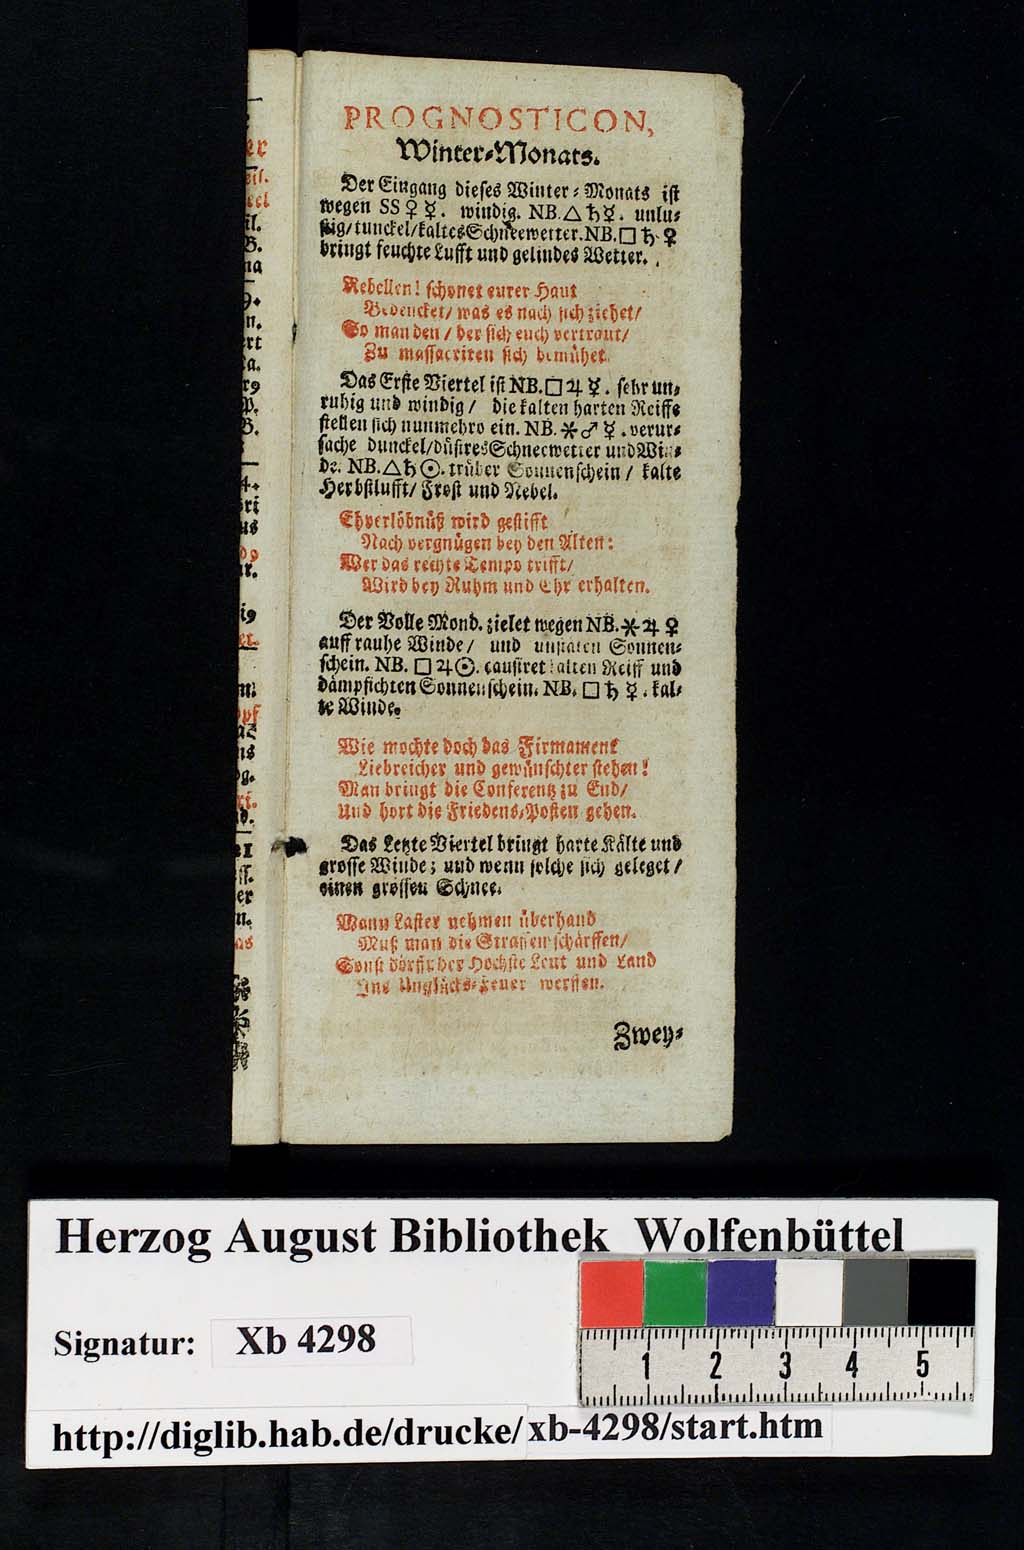 PROGNOSTICON,
Winter-Monats.
Der Eingang dieses Winter-Monats ist
wegen SS ♀ ☿. windig. NB. △ ♄ ☿. unlu-
stig/ tunckel/ kaltes Schneewetter. NB. □ ♄ ♀
bringt feuchte Lufft und gelindes Wetter.
Rebellen! schonet eurer Haut
Bedencket/ was es nach sich ziehet/
So man den / der sich euch vertraut/
Zu massacriren sich bemühet.
Das Erste Viertel ist NB. □ ♃ ☿. sehr un-
ruhig und windig / die kalten harten Reiffe
stellen sich nunmehro ein. NB. ⚹ ♂ ☿. verur-
sache dunckel/ düstres Schneewetter und Win-
de. NB. △ ♄ ☉. trüber Sonnenschein / kalte
Herbstlufft/ Frost und Nebel.
Ehverlöbnüß wird gestifft
Nach vergnügen bey den Alten:
Wer das rechte Tempo trifft/
Wird bey Ruhm und Ehr erhalten.
Der Volle Mond. zielet wegen NB. ⚹ ♃ ♀
auff rauhe Winde / und unstaten Sonnen-
schein. NB. □ ♃ ☉. causiret kalten Reiff und
dämpfichten Sonnenschein. NB. □ ♄ ☿. kal-
te Winde.
Wie mochte doch das Firmament
Liebreicher und gewünschter stehen!
Man bringt die Conferentz zu End/
Und hort die Friedens-Posten gehen.
Das Letzte Viertel bringt harte Kälte und
grosse Winde; und wenn solche sich geleget /
einen grossen Schnee.
Wann Laster nehmen überhand
Muß man die Straffen schärffen/
Sonst dörfft der Höchste Leut und Land
Ins Unglücks-Feuer werffen.
Zwey-
Herzog August Bibliothek Wolfenbüttel
Signatur: Xb 4298
1 2 3 4 5
http://diglib.hab.de/drucke/xb-4298/start.htm